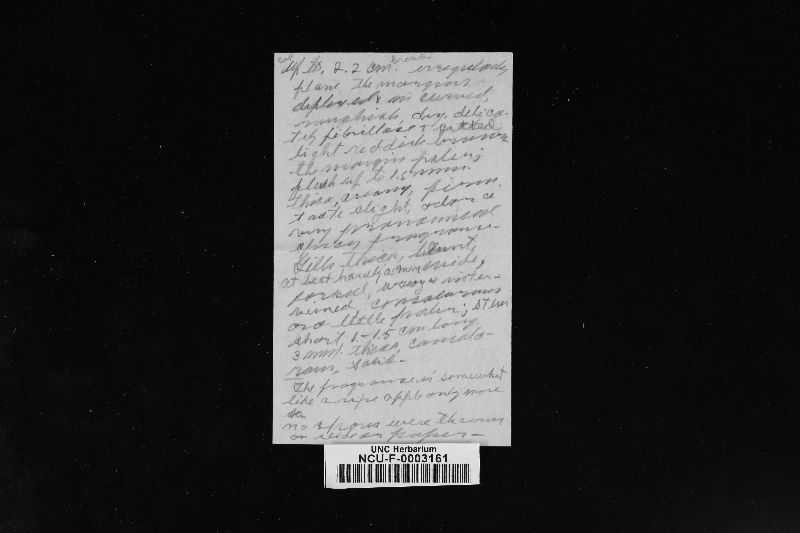 Cap
up to 2.2 cm. broad irregularly
plane the margins
deplaned or curved,
roughish, dry, delica-
tely fibrillose & pitted
light reddish brown
the margin paler;
flesh up to 1.5 mm.
thick, creamy, firm.
taste slight, odor a
very pronounced
spicy fragrance.
Gills thick, blunt,
at best hardly a mm wide,
forked, wavy & inter-
veined, concolorous
or a little paler; stem
short, 1-1.5 cm long
3 mm. thick, concolo-
rous, solid.
The fragrance is somewhat
like a ripe apple only more
so
no spores were thrown
on paper
UNC Herbarium
NCU-F-0003161